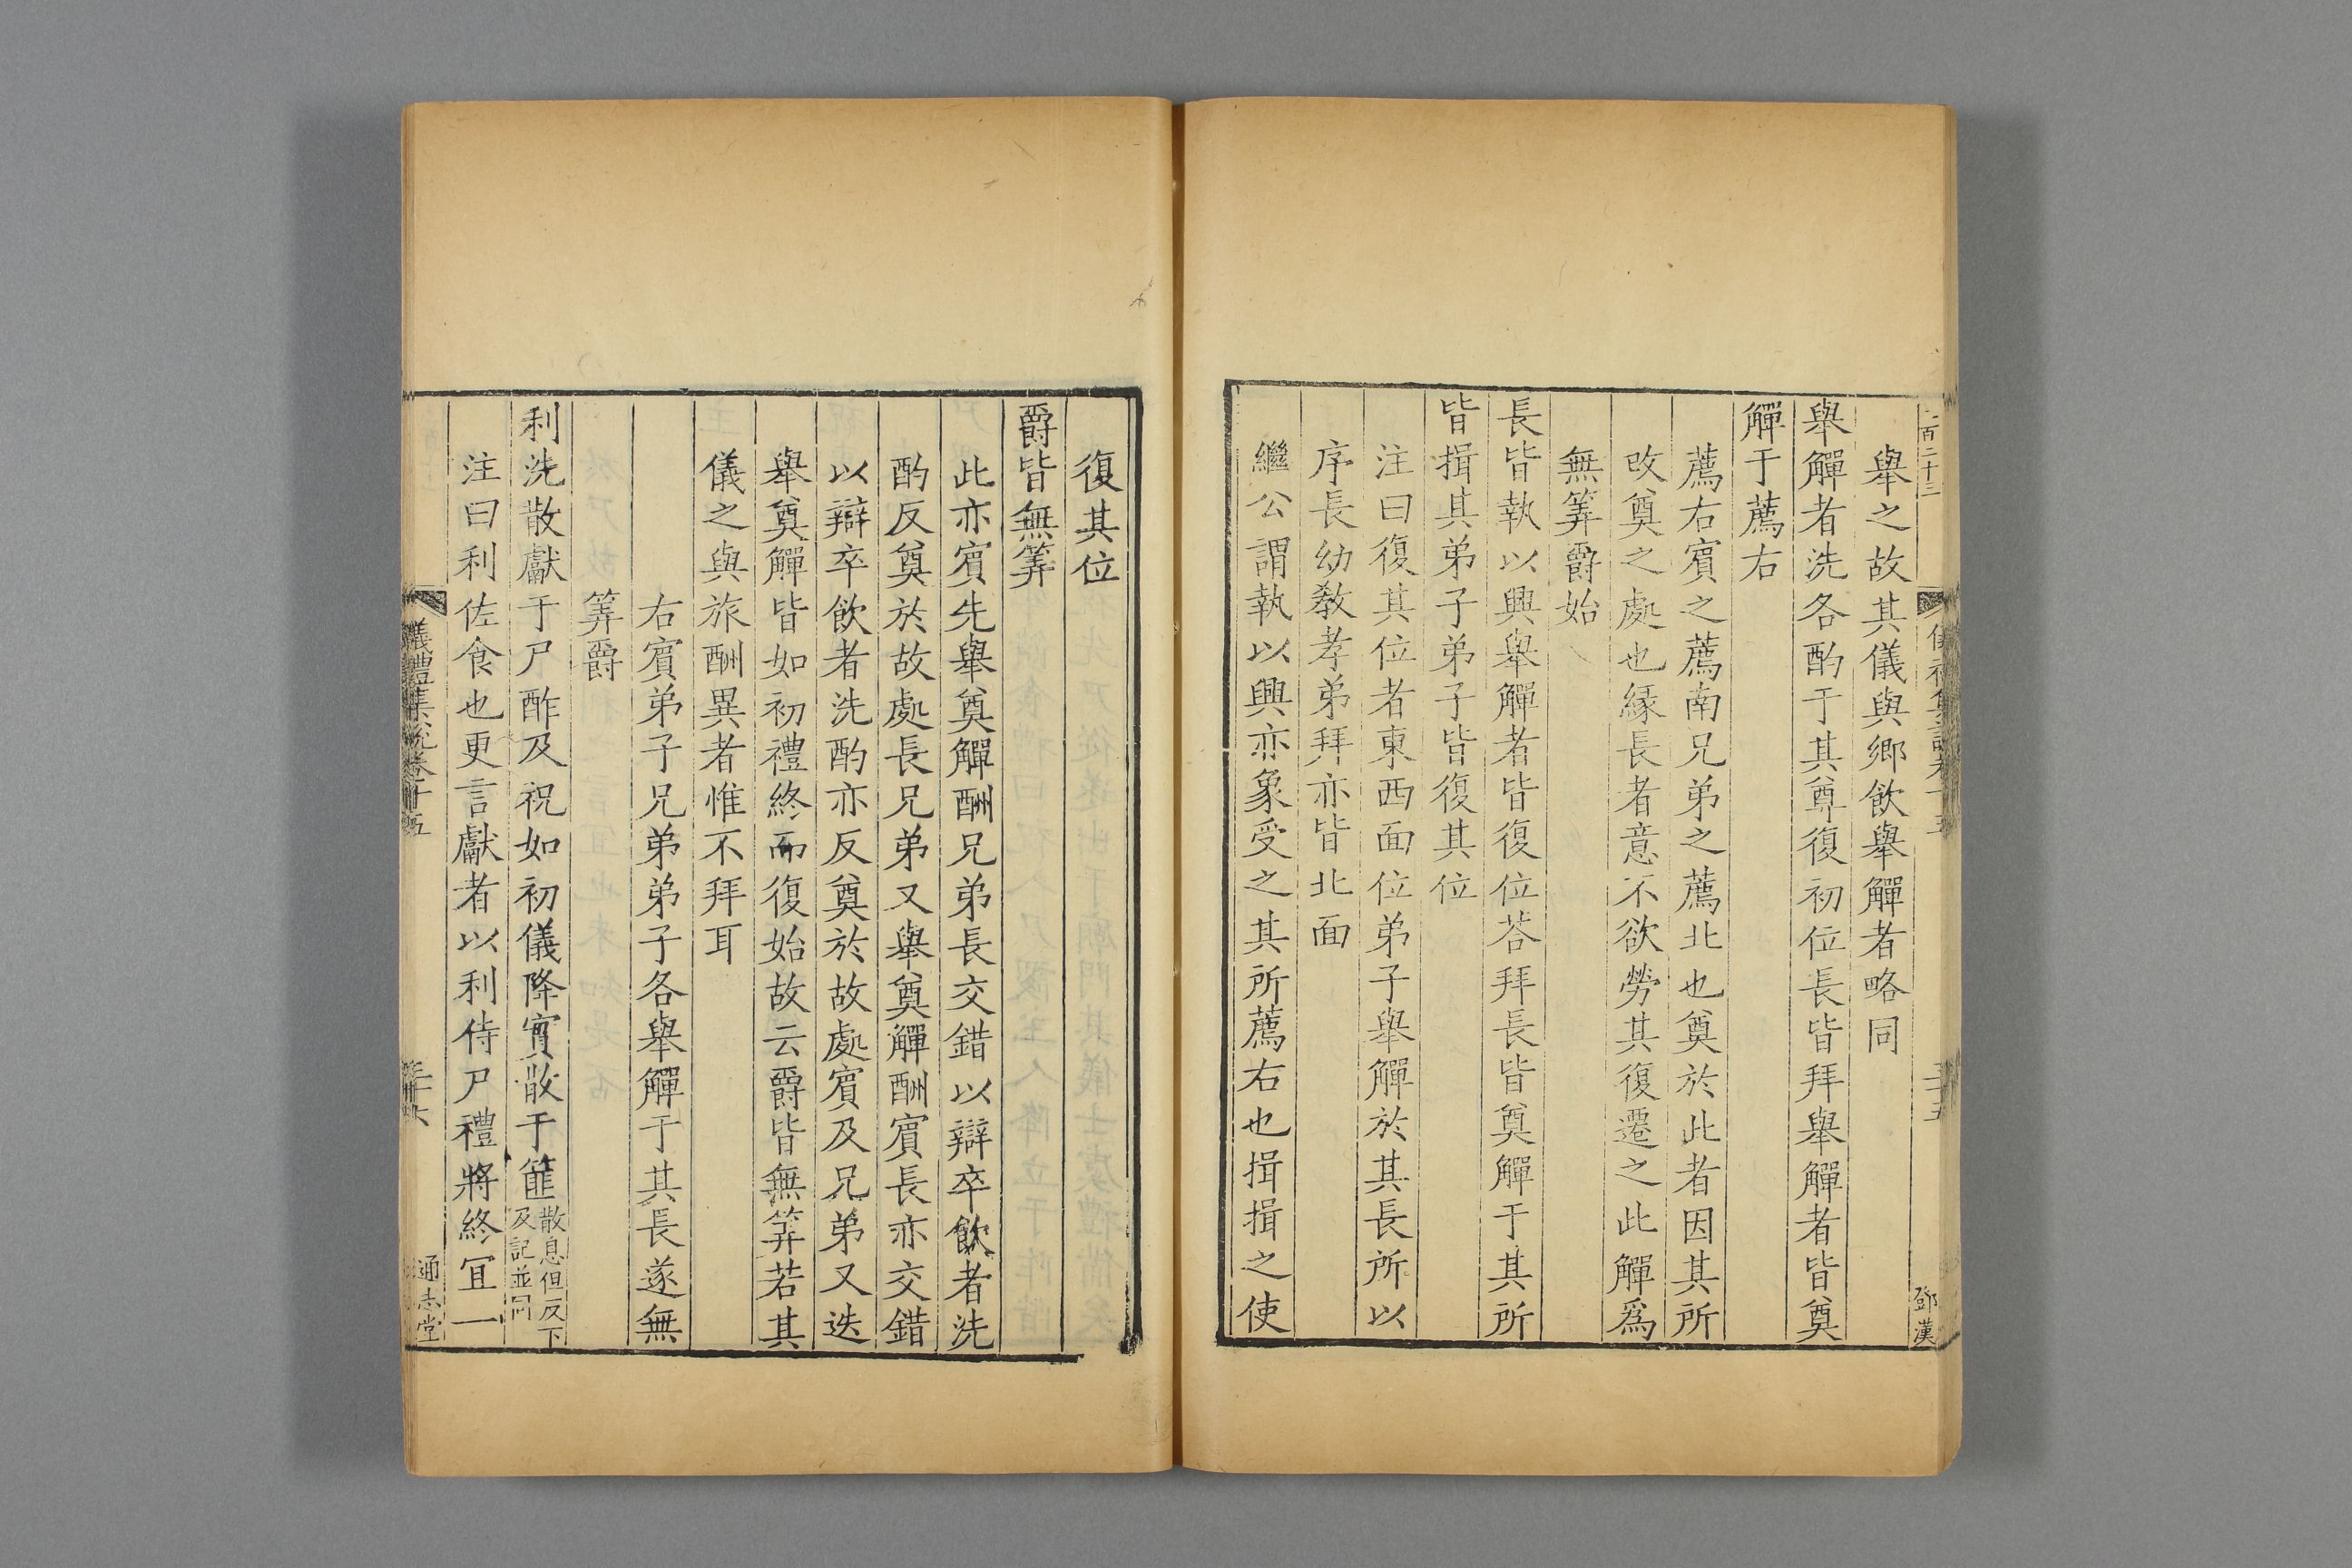 舉之故其儀與鄉飲舉觶者略同
舉觶者洗各酌于其尊復初位長皆拜舉觶者皆奠
觶于薦右
薦右賔之薦南兄弟之薦北也奠於此者因其所
改奠之處也縁長者意不欲勞其復遷之此觶爲
無筭爵始
長皆執以興舉觶者皆復位荅拜長皆奠觶于其所
皆揖其弟子弟子皆復其位
注曰復其位者東西面位弟子舉觶於其長所以
序長幼教孝弟拜亦皆北面
繼公謂執以興亦象受之其所薦右也揖揖之使
復其位
爵皆無筭
此亦賔先舉奠觶酬兄弟長交錯以辯卒飲者洗
酌反奠於故處長兄弟又舉奠觶酬賔長亦交錯
以辯卒飲者洗酌亦反奠於故處賔及兄弟又迭
舉奠觶皆如初禮終而復始故云爵皆無筭若其
儀之與旅酬異者惟不拜耳
右賔弟子兄弟弟子各舉觶于其長遂無
筭爵
利洗散獻于尸酢及祝如初儀降實散于篚散息但反下及記並同
注曰利佐食也更言獻者以利侍尸禮將終宜一
儀禮集說卷十五
通志堂
鄧漢